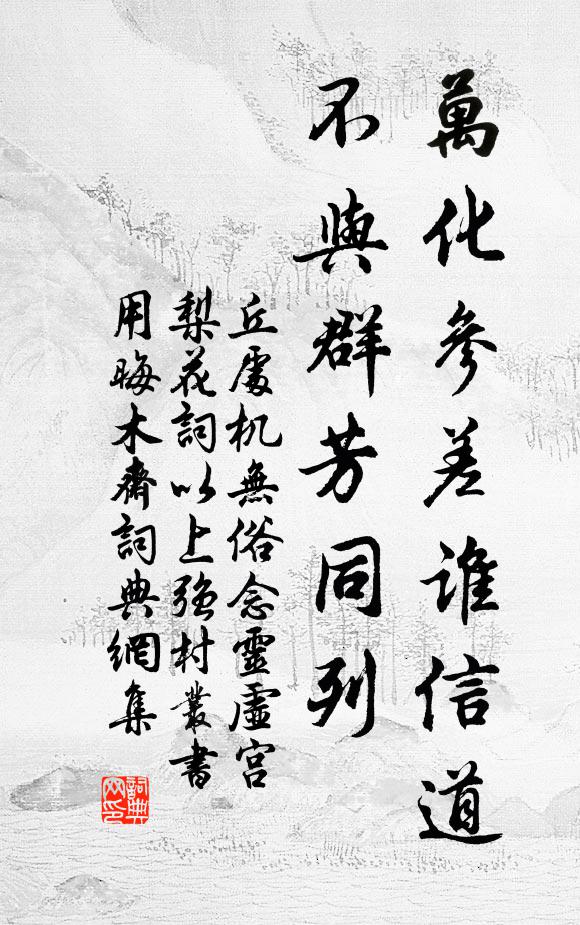 萬化參差誰信道
不與群芳同列
丘處机無俗念靈虛宮
梨花詞以上強村叢書
用晦木齋詞典網集
詞典网印